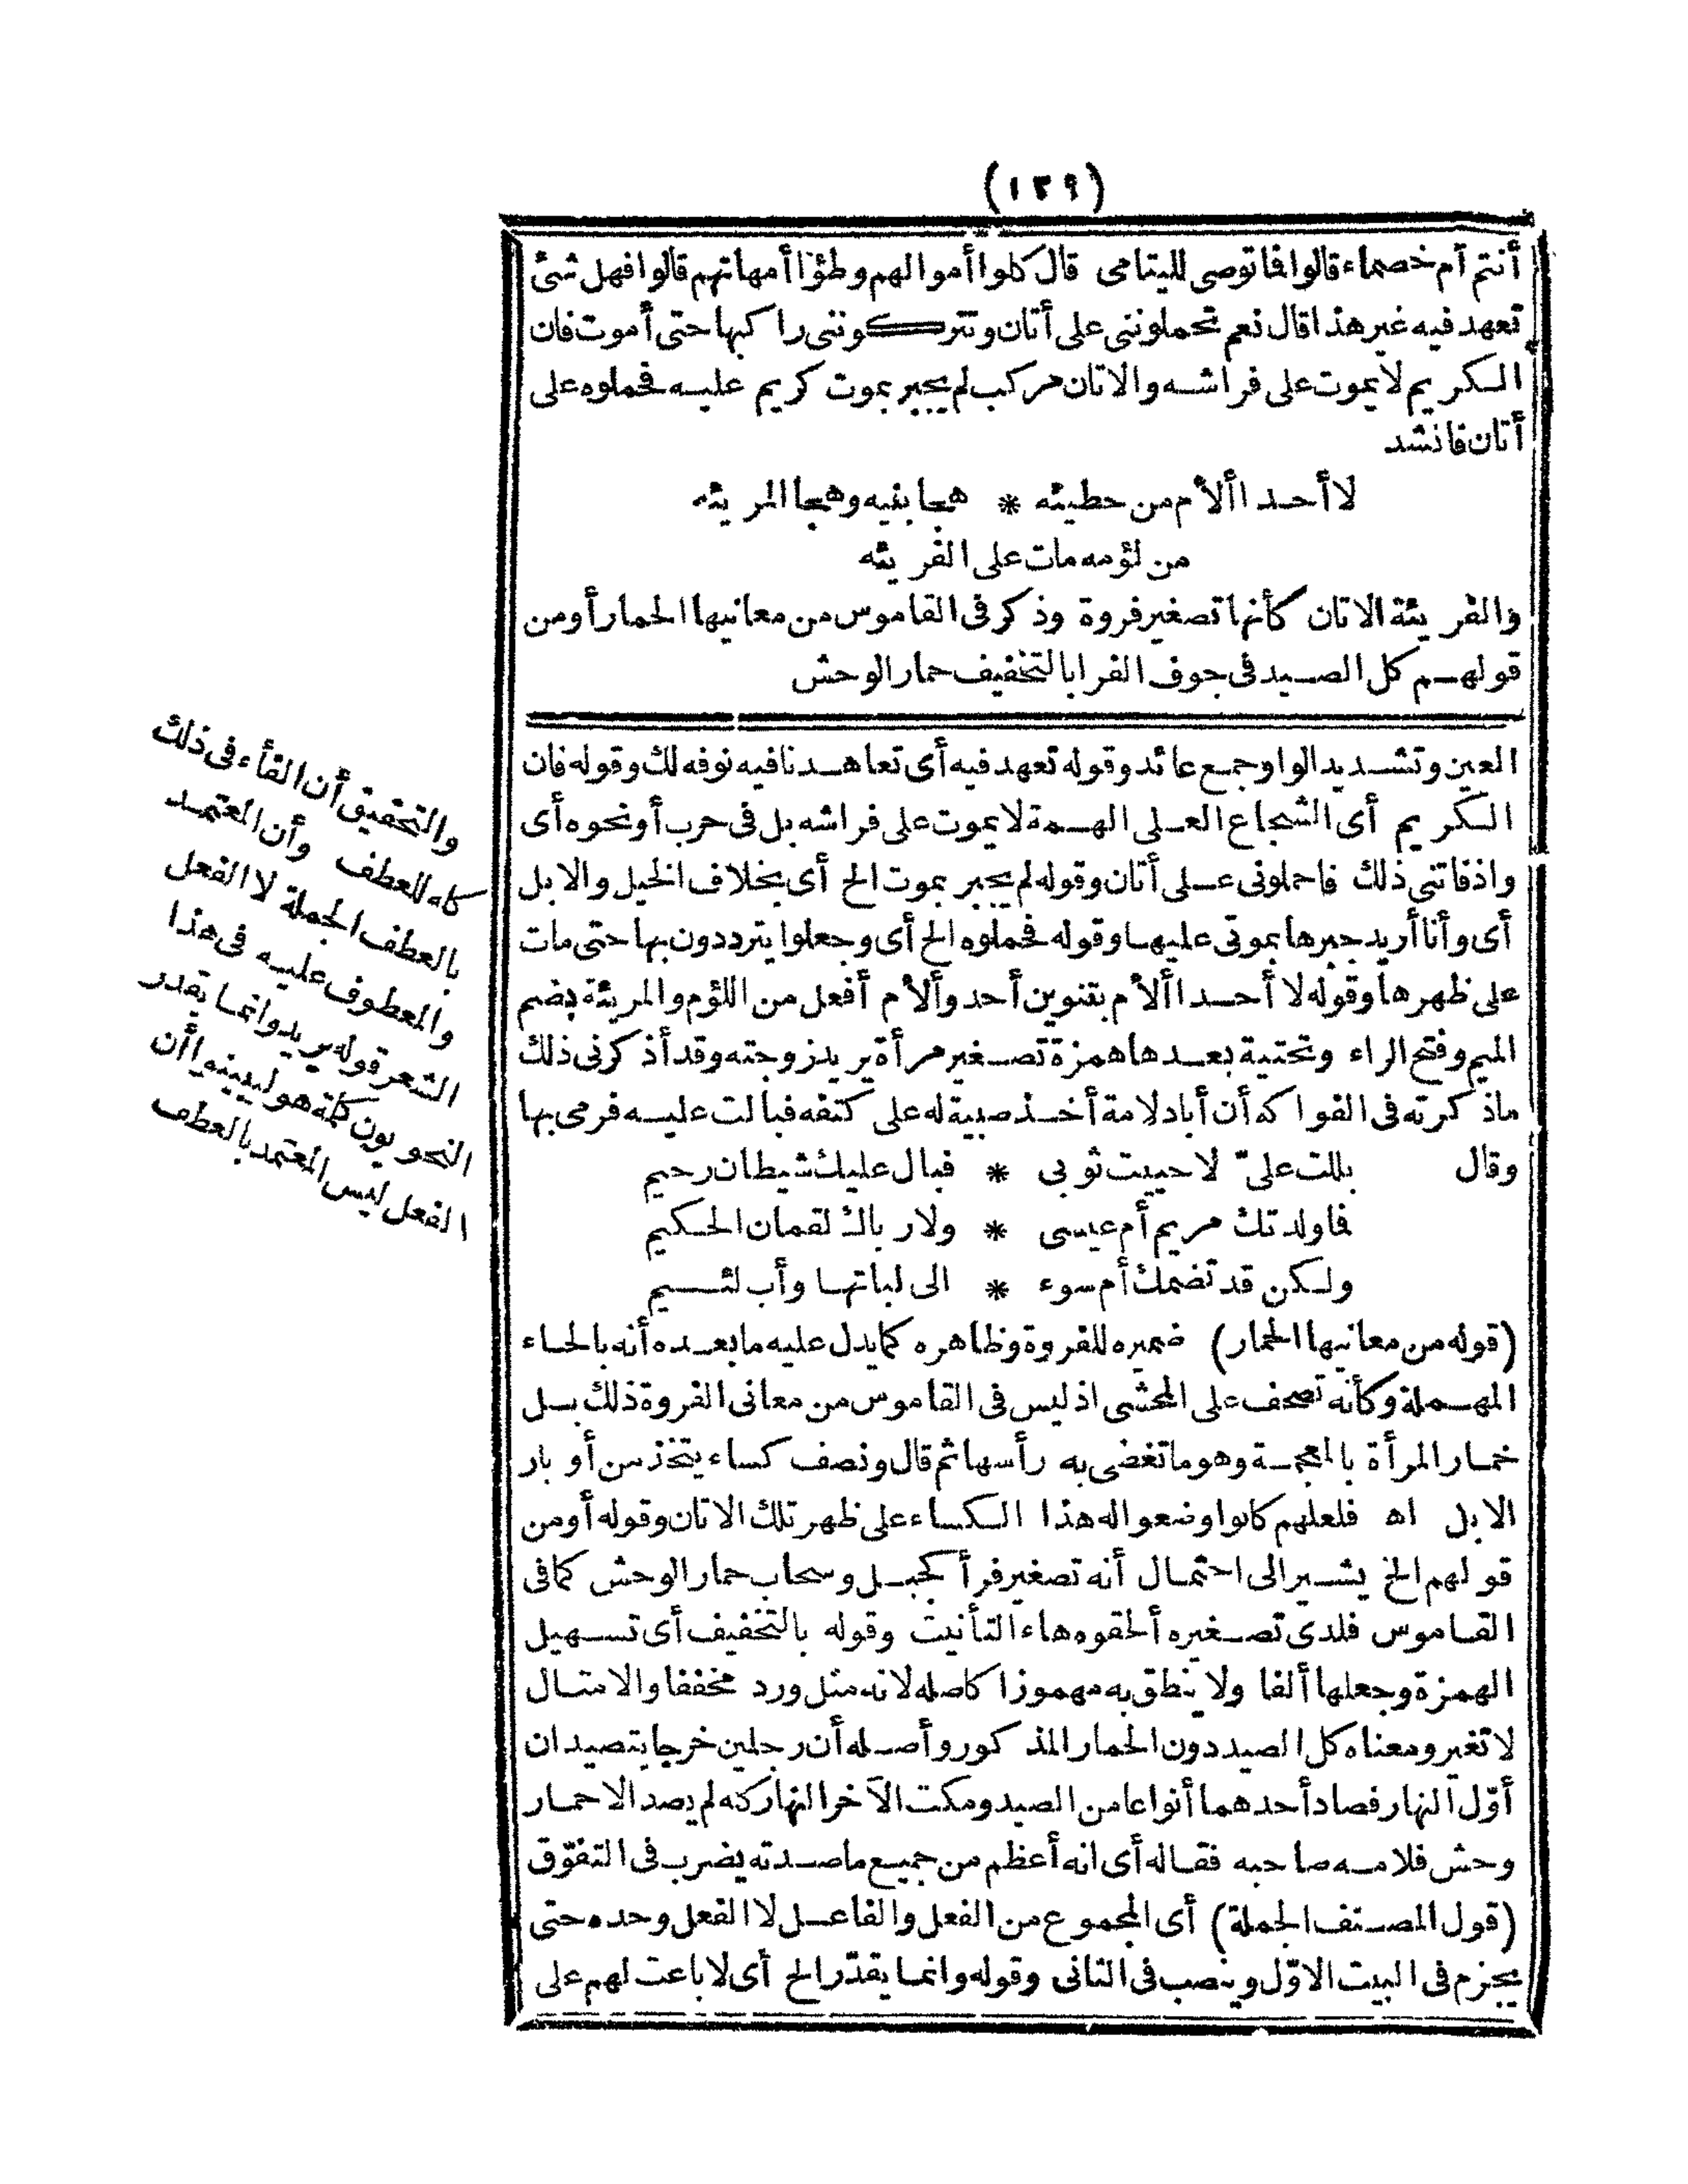 (١٣٩)
أنتم أم خصماء قالوا فما توصى لليتامى قال كلوا أموالهم وطؤا أمهاتهم قالوا فهل شئ
تعهد فيه غير هذا قال نعم تحملوننى على أتان وتتركوننى راكبها حتى أموت فان
الكريم لا يموت على فراشه والاتان مركب لم يجبر بموت كريم عليه فحملوه على
أتان فانشد
لا أحدا ألأم من حطيئه * هجا بنيه وهجا المريئه
من لؤمه مات على الفريئه
والفريئة الاتان كأنها تصغير فروة وذكر فى القاموس من معانيها الحمار أو من
قولهم كل الصيد فى جوف الفرا بالتخفيف حمار الوحش
العين وتشديد الواو جمع عائد وقوله تعهد فيه أى تعاهدنا فيه نوفه لك وقوله فان
الكريم أى الشجاع العلى الهمة لا يموت على فراشه بل فى حرب أو نحوه أى
واذ فاتنى ذلك فاحملونى على أتان وقوله لم يجبر بموت الخ أى بخلاف الخيل والابل
أى وأنا أريد جبرها بموتى عليها وقوله فحملوه الخ أى وجعلوا يترددون بها حتى مات
على ظهرها وقوله لا أحدا ألأم بتنوين أحد وألأم أفعل من اللؤم والمريئة بضم
الميم وفتح الراء وتحتية بعدها همزة تصغير مرأة يريد زوجته وقد أذكرنى ذلك
ما ذكرته فى الفواكه أن أبا دلامة أخذ صبية له على كتفه فبالت عليه فرمى بها
وقال بللت علىّ لا حييت ثوبى * فبال عليك شيطان رحيم
فما ولدتك مريم أم عيسى * ولا رباك لقمان الحكيم
ولكن قد تضمك أم سوء * الى لباتها وأب لئيم
(قوله من معانيها الحمار) ضميره للفروة وظاهره كما يدل عليه ما بعده أنه بالحاء
المهملة وكأنه تصحف على المحشى اذ ليس فى القاموس من معانى الفروة ذلك بل
خمار المرأة بالمعجمة وهو ما تغضى به رأسها ثم قال ونصف كساء يتخذ من أوبار
الابل اه فلعلهم كانوا وضعوا له هذا الكساء على ظهر تلك الاتان وقوله أو من
قولهم الخ يشير الى احتمال أنه تصغير فرأ كجبل وسحاب حمار الوحش كما فى
القاموس فلدى تصغيره ألحقوه هاء التأنيث وقوله بالتخفيف أى تسهيل
الهمزة وجعلها ألفا ولا ينطق به مهموزا كاصله لانه مثل ورد مخففا والامثال
لا تغير ومعناه كل الصيد دون الحمار المذكور وأصله أن رجلين خرجا يتصيدان
أوّل النهار فصاد أحدهما أنواعا من الصيد ومكث الآخر النهار كله لم يصد الا حمار
وحش فلامه صاحبه فقاله أى انه أعظم من جميع ما صدته يضرب فى التفوّق
(قول المصنف الجملة) أى المجموع من الفعل والفاعل لا الفعل وحده حتى
يجزم فى البيت الاوّل وينصب فى الثانى وقوله وانما يقدّر الخ أى لا باعث لهم على
والتحقيق أن الفاء فى ذلك
كله للعطف وأن المعتمد
بالعطف الجملة لا الفعل
والمعطوف عليه فى هذا
الشعر قوله يريد وانما يقدر
النحويون كلمة هو ليبينوا أن
الفعل ليس المعتمد بالعطف